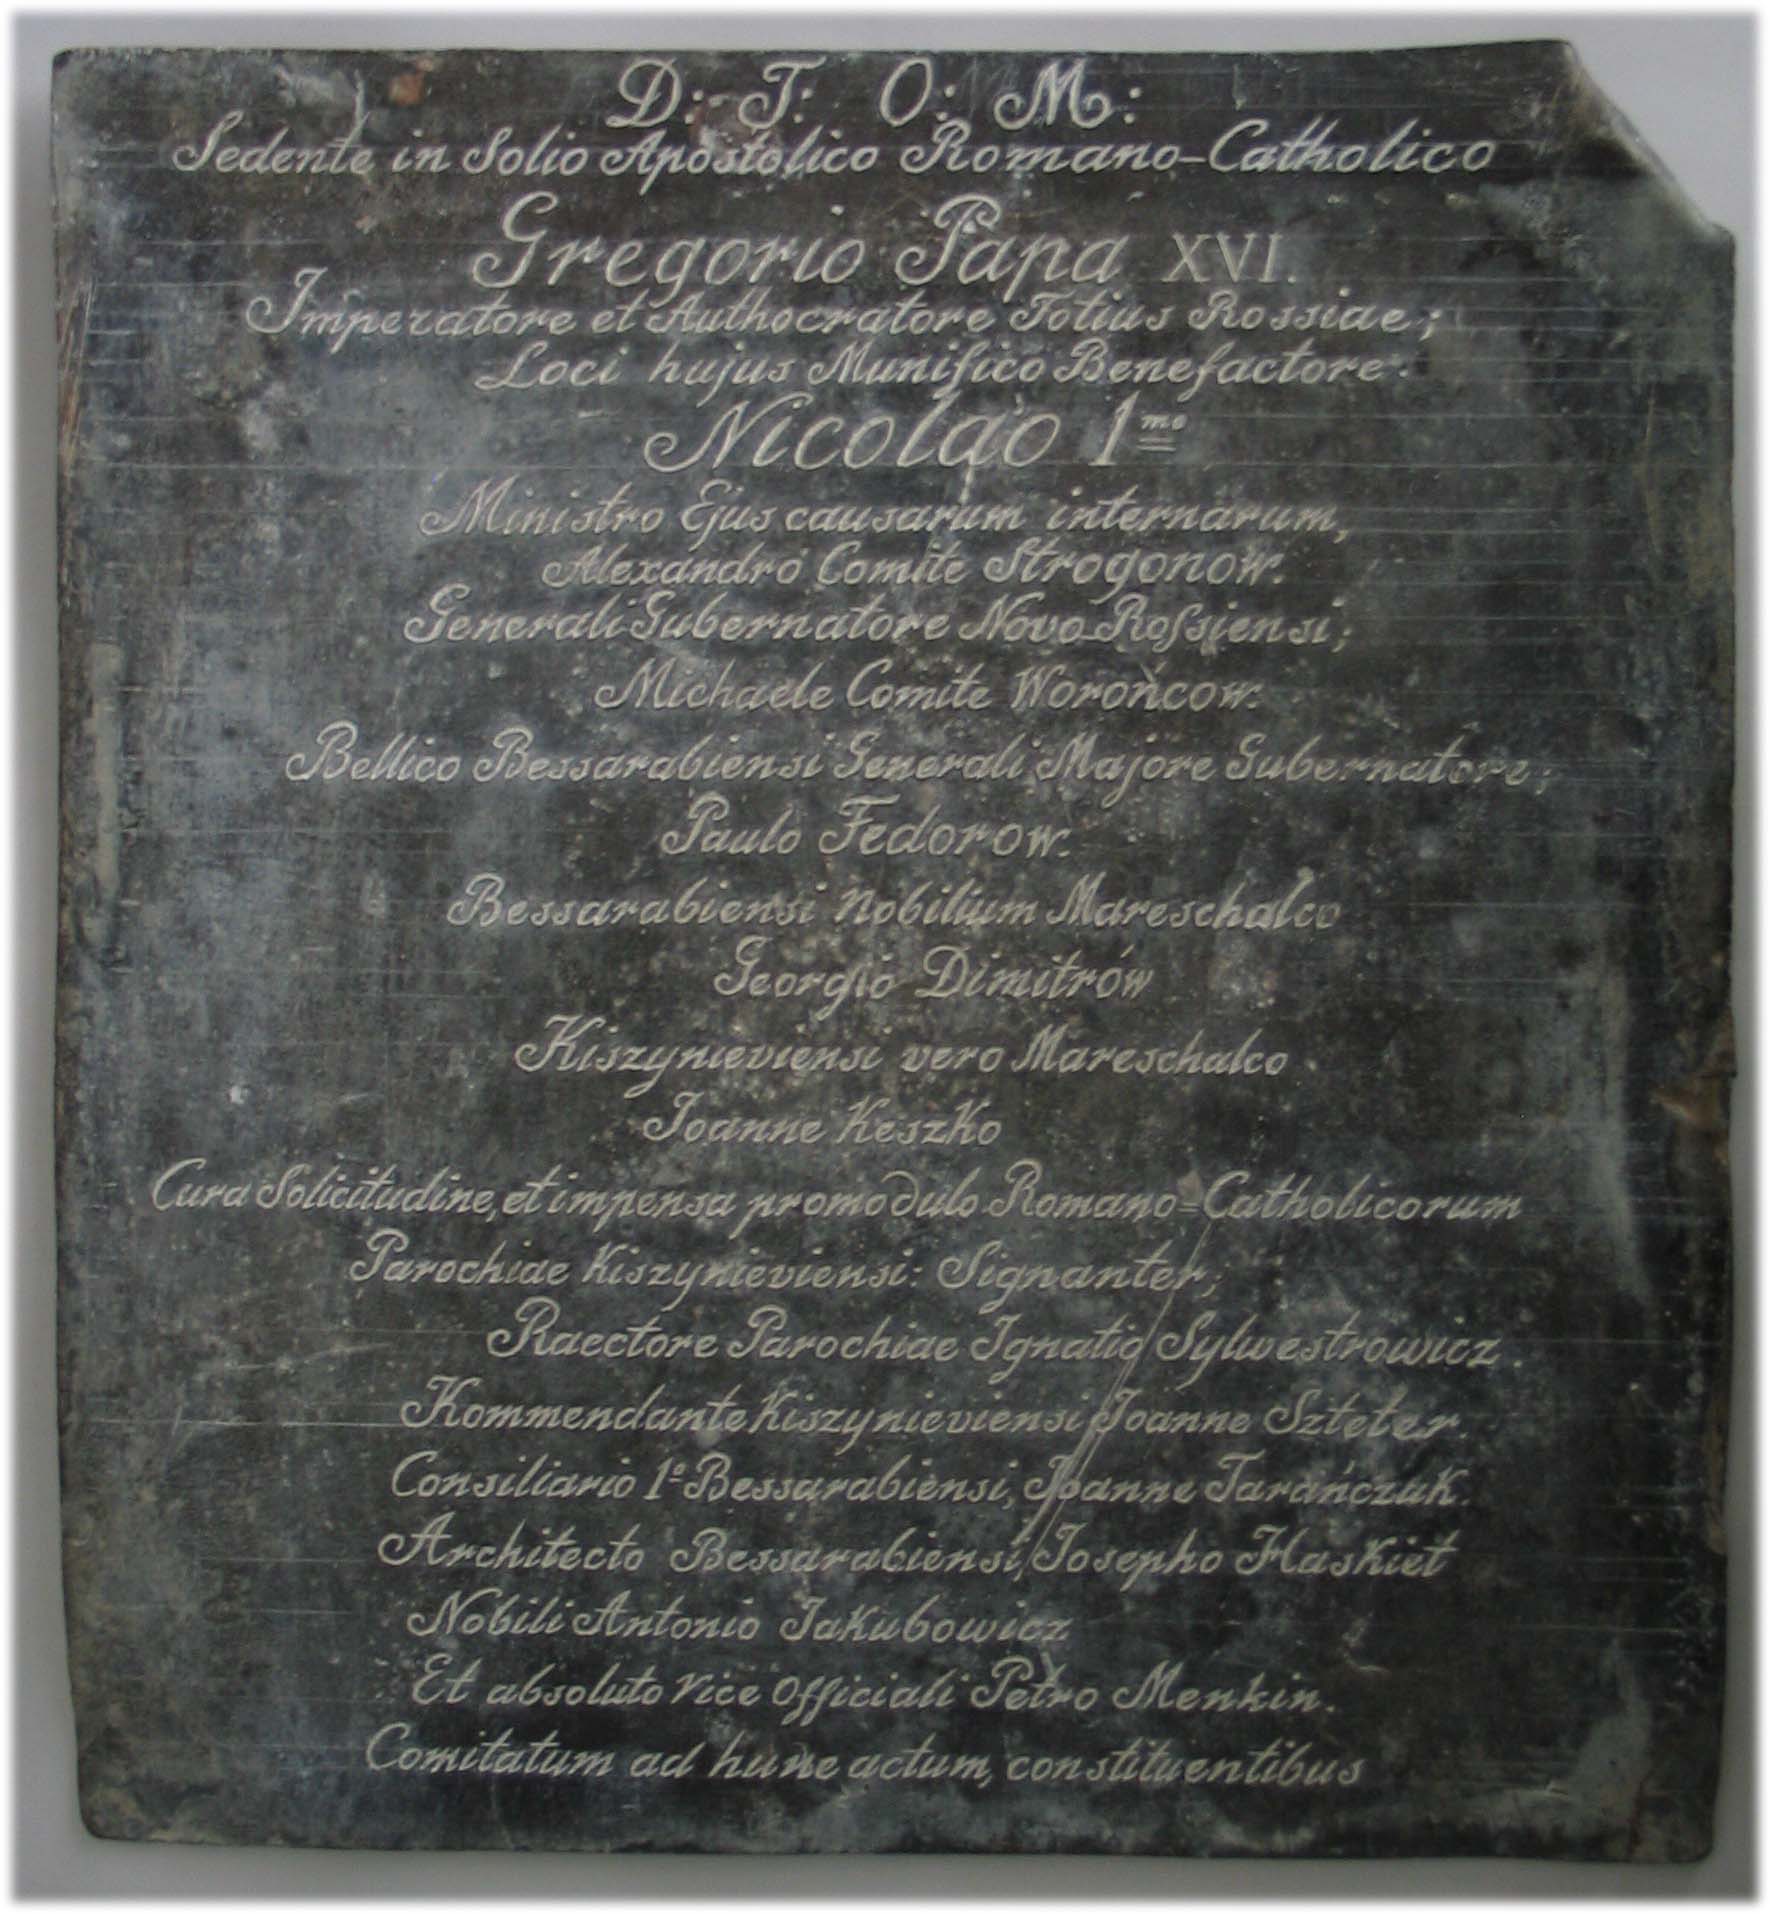 D: T: O: M:
Sedente in Solio Apostolico Romano-Catholico
Gregorio Papa XVI.
Imperatore et Authocratore Totius Rossiae;
Loci hujus Munifico Benefactore.
Nicolao 1mo
Ministro Ejus causarum internarum,
Alexandro Comite Strogonow.
Generali Gubernatore Novo-Rossiensi;
Michaele Comite Worońcow.
Bellico Bessarabiensi Generali Majore Gubernatore;
Paulo Fedorow.
Bessarabiensi Nobilium Mareschalco
Georgio Dimitrów
Kiszynieviensi vero Mareschalco
Joanne Keszko
Cura Solicitudine, et impensa promodulo Romano-Catholicorum
Parochiae Kiszynieviensi: Signanter;
Raectore Parochiae Ignatio Sylwestrowicz.
Kommendante Kiszynieviensi Joanne Szteter.
Consiliario 1o Bessarabiensi, Joanne Tarańczuk.
Architecto Bessarabiensi, Josepho Haskiet
Nobili Antonio Jakubowicz
Et absoluto Vice Officiali Petro Menkin.
Comitatum ad hune actum, constituentibus